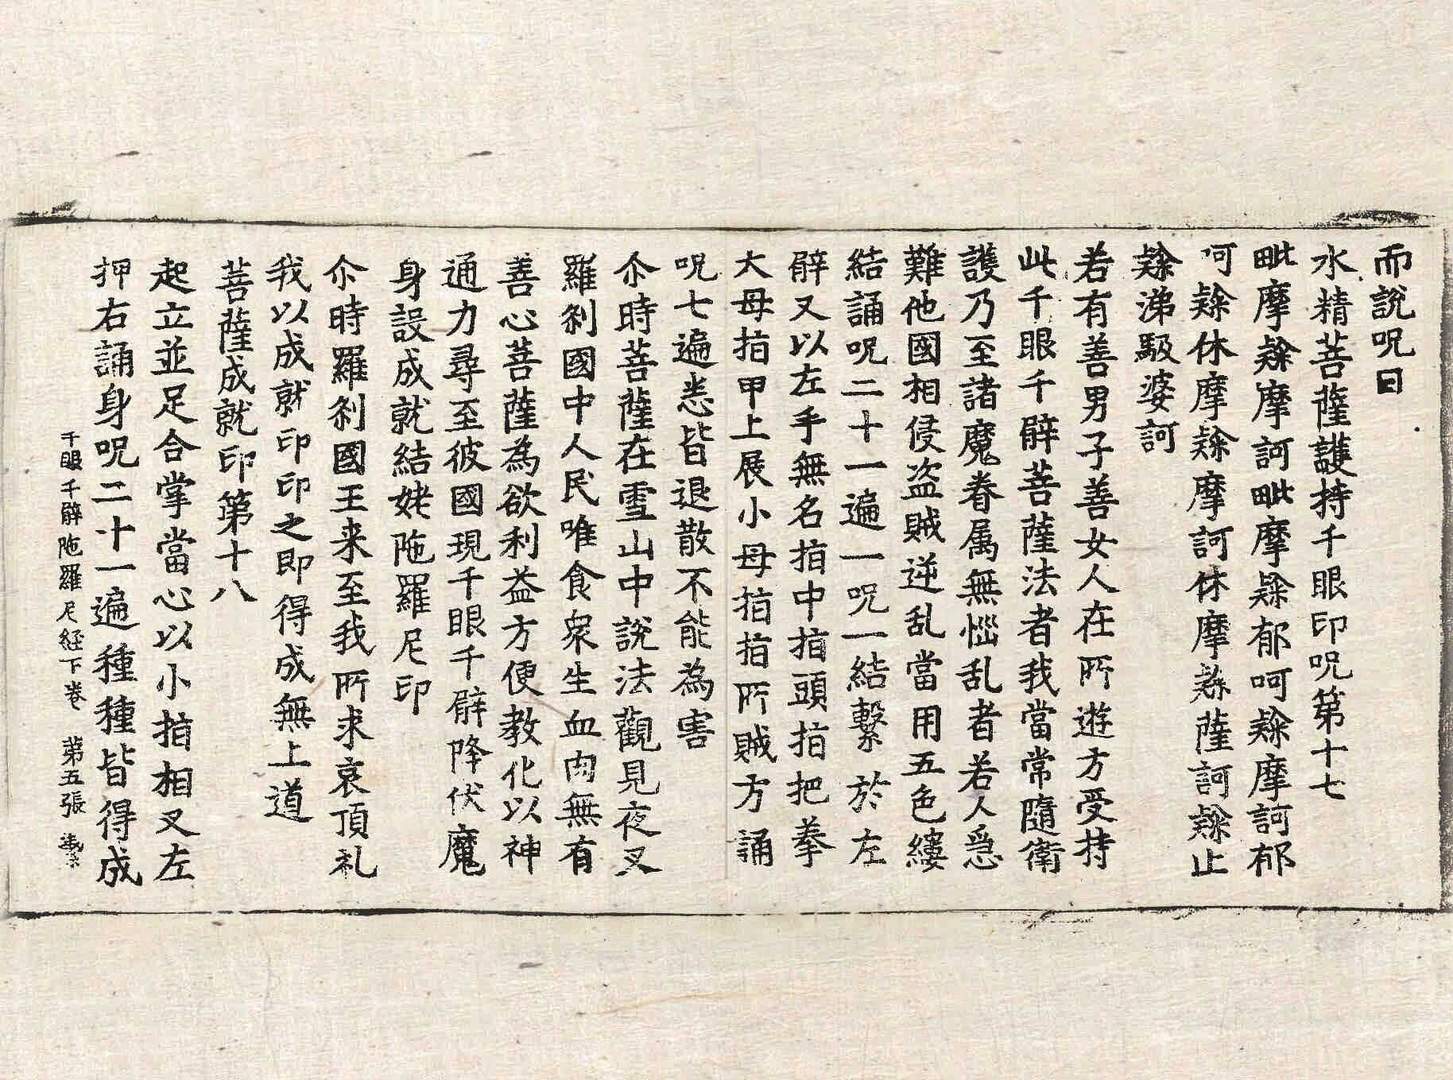 而説呪曰
水精菩薩護持千眼印呪第十七
毗摩㝹摩訶毗摩㝹郁呵㝹摩訶郁
呵㝹休摩㝹摩訶休摩㝹薩訶㝹止
㝹涕馺婆訶
若有善男子善女人在所遊方受持
此千眼千臂菩薩法者我當常隨衛
護乃至諸魔眷属無惱乱者若人爲
難他國相侵盗賊逆乱當用五色縷
結誦呪二十一遍一呪一結繫於左
臂又以左手無名指中指頭指把拳
大母指甲上展小母指指所賊方誦
呪七遍悉皆退散不能為害
尒時菩薩在雪山中說法觀見夜叉
羅刹國中人民唯食衆生血肉無有
善心菩薩為欲利益方便教化以神
通力尋至彼國現千眼千臂降伏魔
身設成就結姥陁羅尼印
尒時羅刹國王来至我所求哀頂礼
我以成就印印之即得成無上道
菩薩成就印第十八
起立並足合掌當心以小指相叉左
押右誦身呪二十一遍種種皆得成
千眼千臂陁羅尼経下卷 第五張